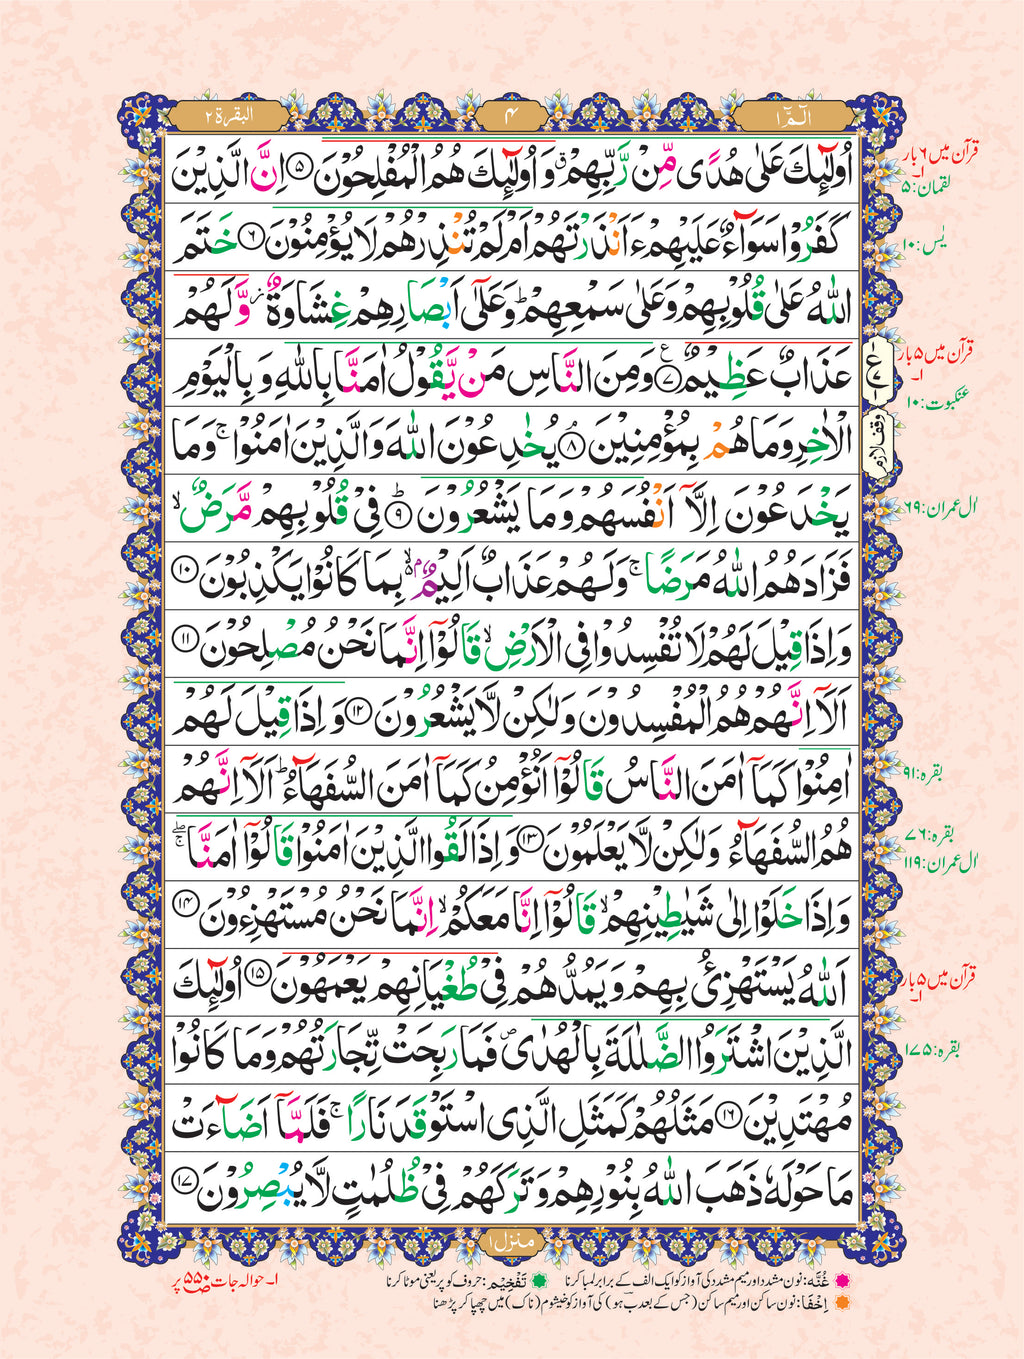 الٓمّٓ ۱
۴
البقرة ۲
اُولٰٓئِكَ عَلٰى هُدًى مِّنْ رَّبِّهِمْ ۗ وَ اُولٰٓئِكَ هُمُ الْمُفْلِحُوْنَ ﴿۵﴾ اِنَّ الَّذِيْنَ
كَفَرُوْا سَوَآءٌ عَلَيْهِمْ ءَاَنْذَرْتَهُمْ اَمْ لَمْ تُنْذِرْهُمْ لَا يُؤْمِنُوْنَ ﴿۶﴾ خَتَمَ
اللّٰهُ عَلٰى قُلُوْبِهِمْ وَعَلٰى سَمْعِهِمْ ؕ وَعَلٰٓى اَبْصَارِهِمْ غِشَاوَةٌ ز وَّ لَهُمْ
عَذَابٌ عَظِيْمٌ ﴿۷﴾ ع وَمِنَ النَّاسِ مَنْ يَّقُوْلُ اٰمَنَّا بِاللّٰهِ وَ بِالْيَوْمِ
الْاٰخِرِ وَمَا هُمْ بِمُؤْمِنِيْنَ ﴿۸﴾ يُخٰدِعُوْنَ اللّٰهَ وَالَّذِيْنَ اٰمَنُوْا ۚ وَمَا
يَخْدَعُوْنَ اِلَّاۤ اَنْفُسَهُمْ وَمَا يَشْعُرُوْنَ ﴿۹﴾ؕ فِيْ قُلُوْبِهِمْ مَّرَضٌ ۙ
فَزَادَهُمُ اللّٰهُ مَرَضًا ۚ وَلَهُمْ عَذَابٌ اَلِيْمٌۢ ۙ بِمَا كَانُوْا يَكْذِبُوْنَ ﴿۱۰﴾
وَاِذَا قِيْلَ لَهُمْ لَا تُفْسِدُوْا فِى الْاَرْضِ ۙ قَالُوْۤا اِنَّمَا نَحْنُ مُصْلِحُوْنَ ﴿۱۱﴾
اَلَاۤ اِنَّهُمْ هُمُ الْمُفْسِدُوْنَ وَلٰكِنْ لَّا يَشْعُرُوْنَ ﴿۱۲﴾ وَ اِذَا قِيْلَ لَهُمْ
اٰمِنُوْا كَمَاۤ اٰمَنَ النَّاسُ قَالُوْۤا اَنُؤْمِنُ كَمَاۤ اٰمَنَ السُّفَهَآءُ ؕ اَلَاۤ اِنَّهُمْ
هُمُ السُّفَهَآءُ وَلٰكِنْ لَّا يَعْلَمُوْنَ ﴿۱۳﴾ وَ اِذَا لَقُوا الَّذِيْنَ اٰمَنُوْا قَالُوْۤا اٰمَنَّا ۖۚ
وَاِذَا خَلَوْا اِلٰى شَيٰطِيْنِهِمْ ۙ قَالُوْۤا اِنَّا مَعَكُمْ ۙ اِنَّمَا نَحْنُ مُسْتَهْزِءُوْنَ ﴿۱۴﴾
اَللّٰهُ يَسْتَهْزِئُ بِهِمْ وَيَمُدُّهُمْ فِيْ طُغْيَانِهِمْ يَعْمَهُوْنَ ﴿۱۵﴾ اُولٰٓئِكَ
الَّذِيْنَ اشْتَرَوُا الضَّلٰلَةَ بِالْهُدٰى ص فَمَا رَبِحَتْ تِّجَارَتُهُمْ وَمَا كَانُوْا
مُهْتَدِيْنَ ﴿۱۶﴾ مَثَلُهُمْ كَمَثَلِ الَّذِى اسْتَوْقَدَ نَارًا ۚ فَلَمَّاۤ اَضَآءَتْ
مَا حَوْلَهٗ ذَهَبَ اللّٰهُ بِنُوْرِهِمْ وَ تَرَكَهُمْ فِيْ ظُلُمٰتٍ لَّا يُبْصِرُوْنَ ﴿۱۷﴾
قرآن میں ۶ بار
۱
لقمان: ۵
یٰس: ۱۰
قرآن میں ۵ بار
۱
عنکبوت: ۱۰
وقف لازم
اٰل عمران: ۶۹
بقرہ: ۹۱
بقرہ: ۷۶
اٰل عمران: ۱۱۹
قرآن میں ۵ بار
۱
بقرہ: ۱۷۵
منزل ۱
غُنَّه: نون مشدد اور میم مشدد کی آواز کو ایک الف کے برابر لمبا کرنا
تَفْخِيْم: حروف کو پُر یعنی موٹا کرنا
۱۔ حوالہ جات ص ۵۵۰ پر
اِخْفَا: نون ساکن اور میم ساکن (جس کے بعد ب ہو) کی آواز کو خیشوم (ناک) میں چھپا کر پڑھنا